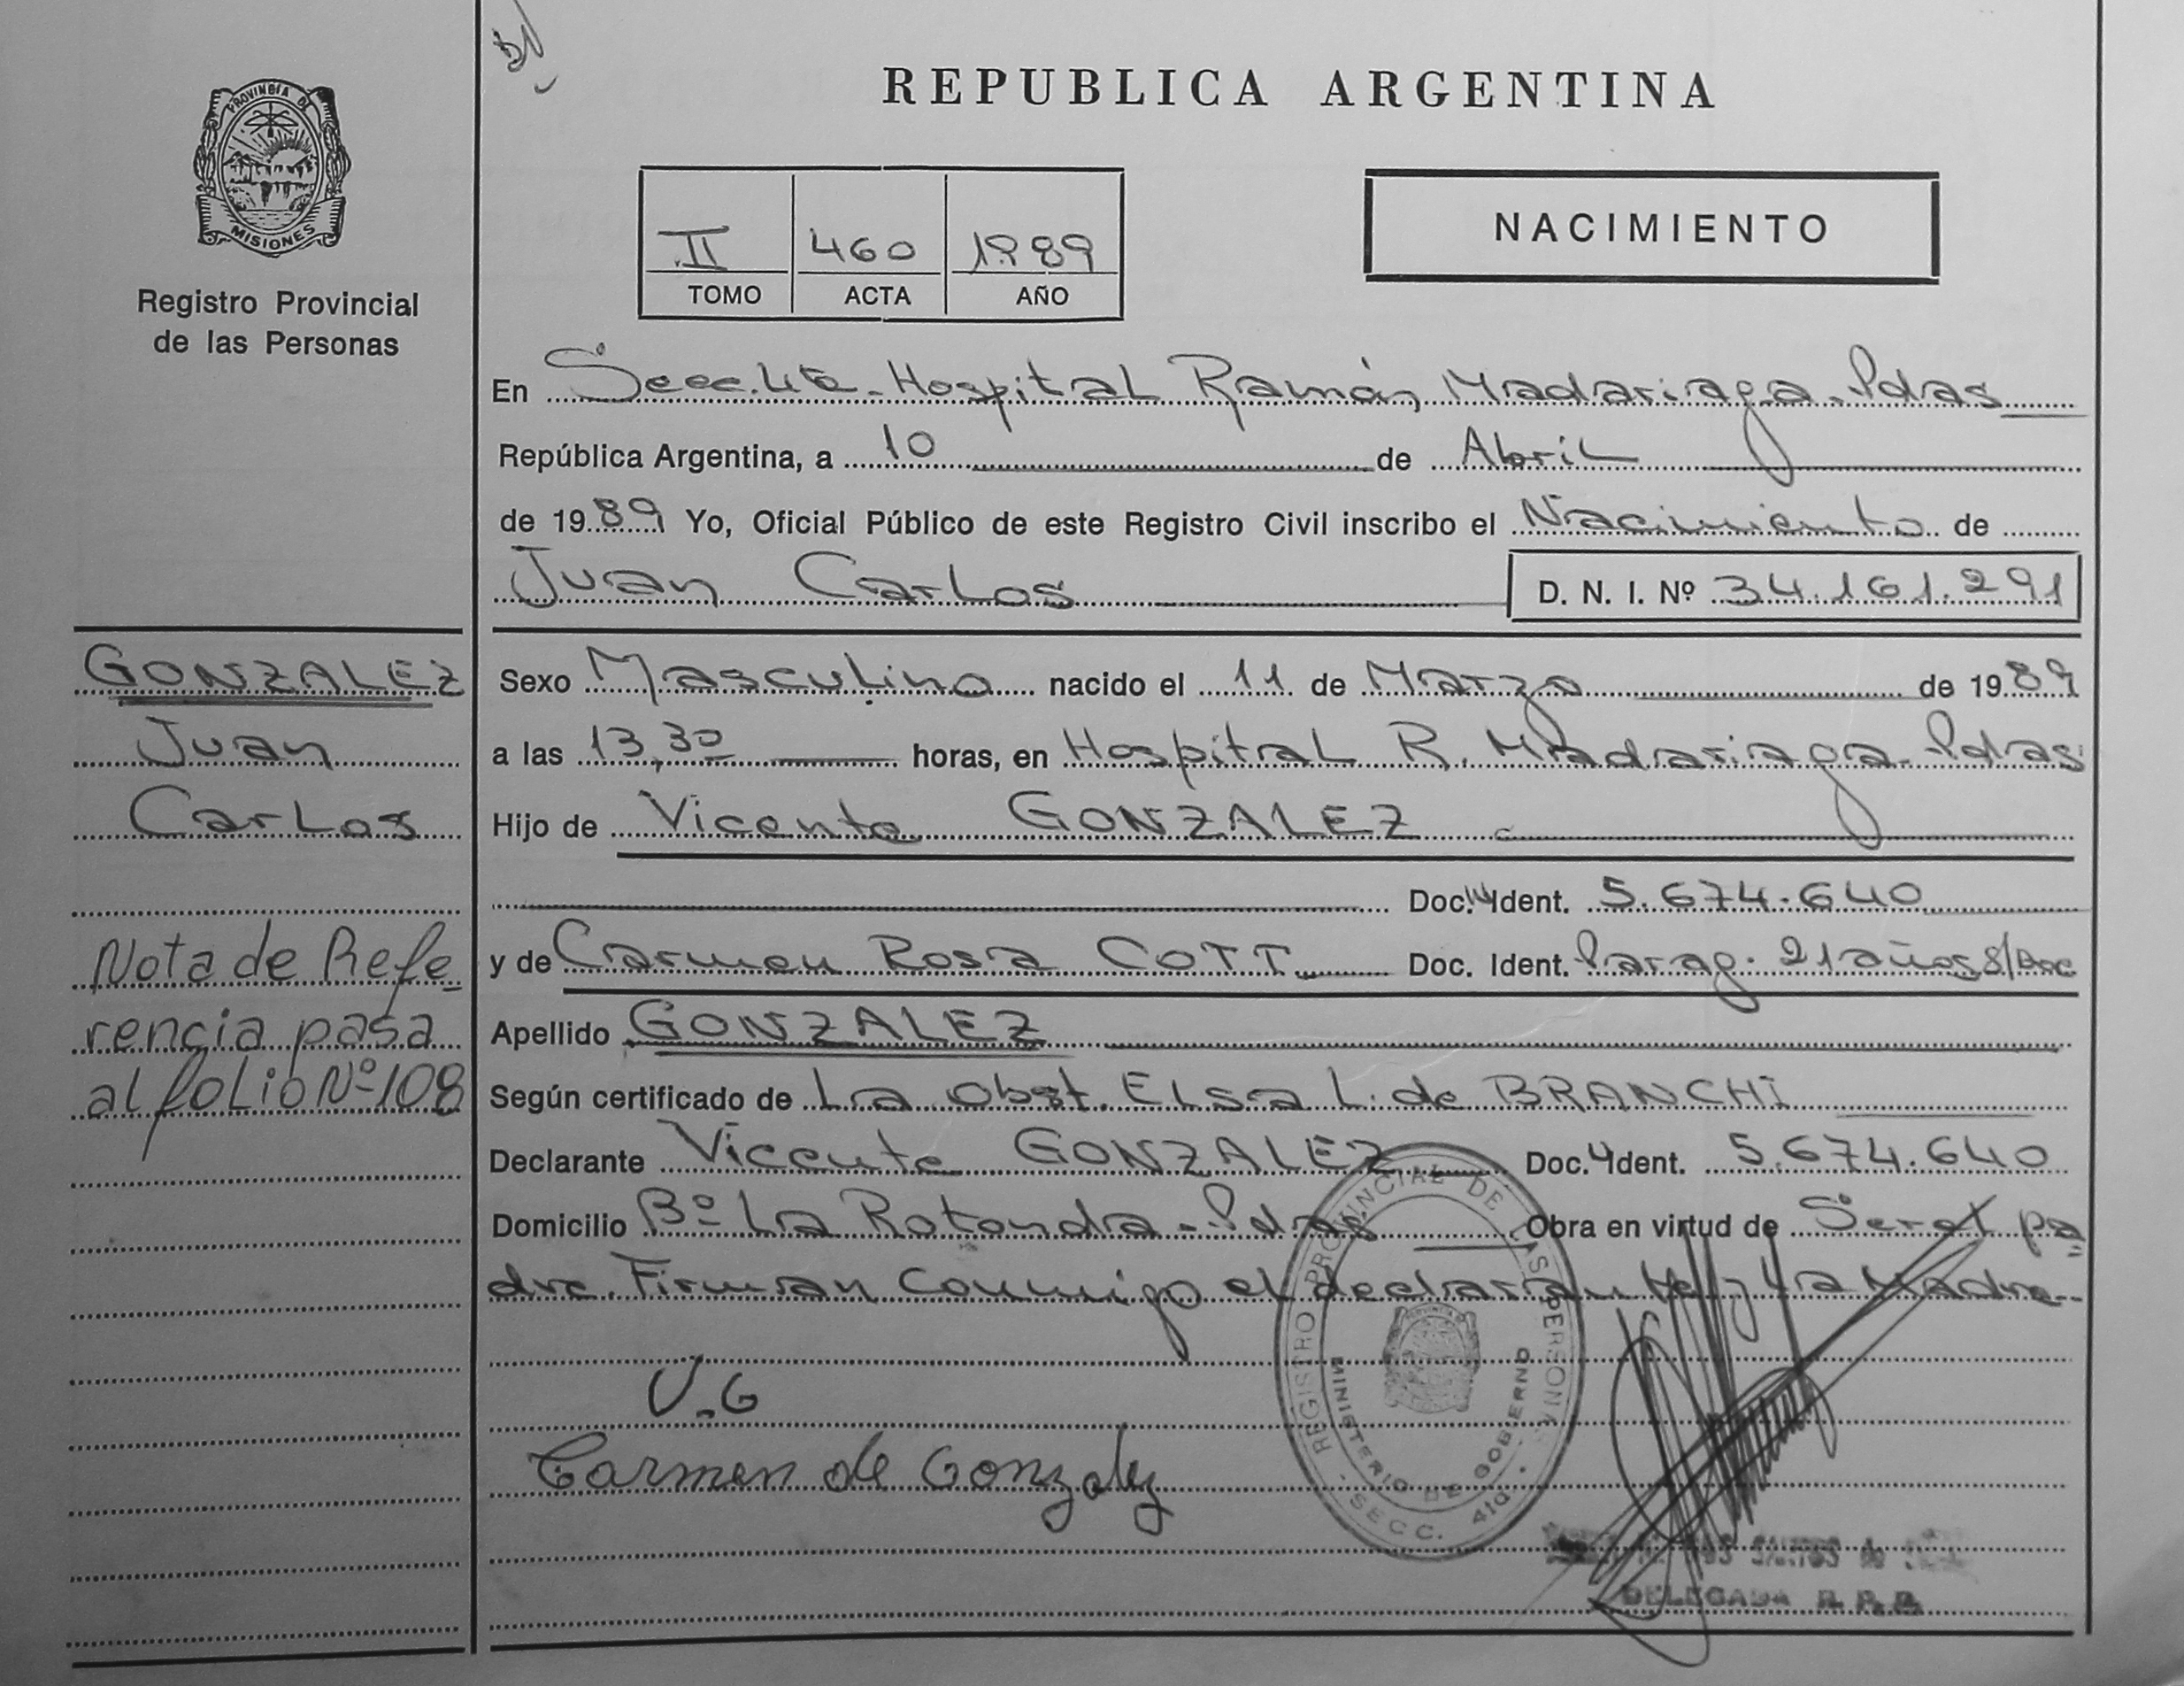 REPUBLICA ARGENTINA
PROVINCIA DE
MISIONES
Registro Provincial
de las Personas
II 460 1989
TOMO ACTA AÑO
NACIMIENTO
En Secc. 4ta - Hospital Ramón Madariaga. Pdas
República Argentina, a 10 de Abril
de 1989 Yo, Oficial Público de este Registro Civil inscribo el Nacimiento de
Juan Carlos D. N. I. Nº 34.161.291
GONZALEZ
Juan
Carlos
Nota de Refe-
rencia pasa
al folio Nº 108
Sexo Masculino nacido el 11 de Marzo de 1989
a las 13,30 horas, en Hospital R. Madariaga - Pdas
Hijo de Vicente GONZALEZ
Doc. Ident. 5.674.640
y de Carmen Rosa COTT Doc. Ident. Parag. 21 años S/Doc
Apellido GONZALEZ
Según certificado de La Obst. Elsa L. de BRANCHI
Declarante Vicente GONZALEZ Doc. Ident. 5.674.640
Domicilio Bº La Rotonda - Pdas Obra en virtud de Ser el pa=
dre. Firman conmigo el declarante y La Madre
V.G
Carmen de Gonzalez
REGISTRO PROVINCIAL DE LAS PERSONAS
MINISTERIO DE GOBIERNO
SECC. 4ta
DELEGADA R. P. P.